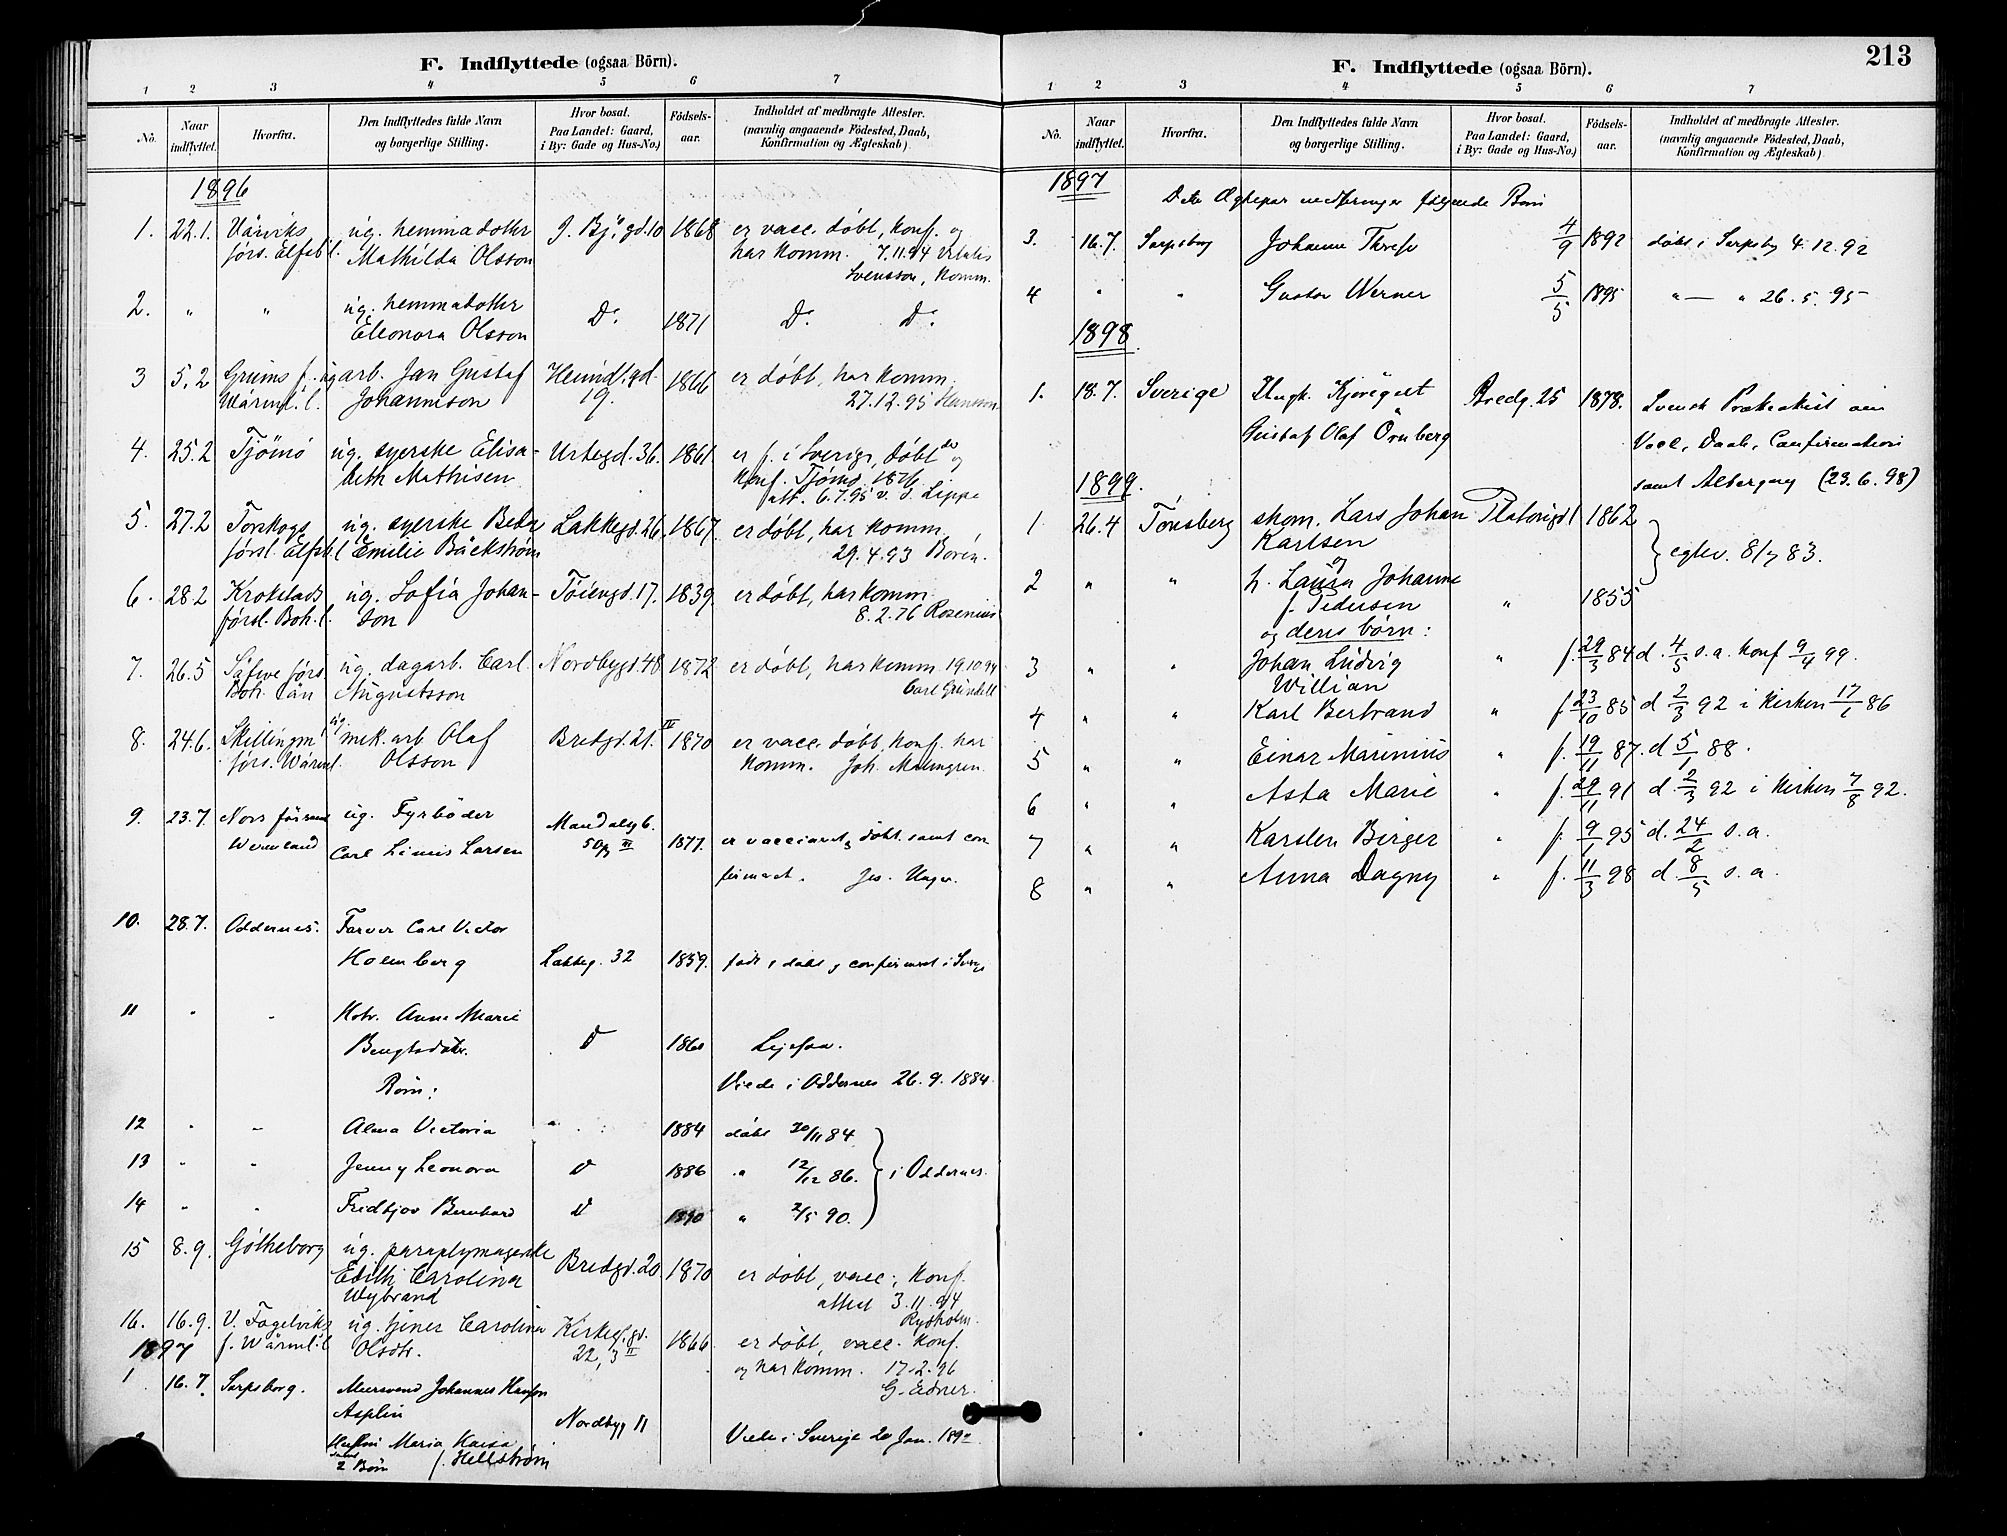 F. Indflyttede (ogsaa Börn).
1 2 3 4 5 6 7
No. Naar indflyttet. Hvorfra. Den Indflyttedes fulde Navn og borgerlige Stilling. Hvor bosat. Paa Landet: Gaard, i By: Gade og Hus-No.) Födsels-aar. Indholdet af medbragte Attester. (navnlig angaaende Födested, Daab, Konfirmation og Ægteskab)
1896
1. 22.1. ug. hemmadotter 1868 er vacc. döbt, konf. og
förs. Elfsb. l. Mathilda Olsson har komm. 7.11.94
Svensson, komm.
2. " " ug. hemmadotter Do 1871 Do Do
Eleonora Olsson
3 5.2 Grums f. ug arb. Jan Gustaf Heimd.gd. 1866 er döbt, har komm.
Wärml. l. Johannison 19. 27.12.95
4. 25.2 Tjömö ug. syerske Elisa- Urtegd. 36. 1861 er f. i Sverige, döbt do og
beth Mathisen konf. Tjömö 1876
att. 6.7.95 v. S. Lippe
5. 27.2 Torskogs ug. syerske Beda Lakkegd. 26. 1867 er döbt, har komm.
försl. Elfsb. l Emilie Bäckström 29.4.93 Borén.
6. 28.2 Krokstads ug. Sofia Johan- Töiengd. 17. 1839. er döbt, har komm.
försl. Boh. l. son 8.2.76 Rosenius
7. 26.5 Säfwe förs. ug. dagarb. Carl Nordbygd. 48 1872 er döbt, har komm. 19.10.94
Boh. län Augustsson Carl Grundell
8. 24.6. Skillingm. ug. mek. arb Olaf Bredgd. 21. IV 1870 er vacc. döbt, konf. har
förs. Wärml. Olsson komm. Joh. Malmgren.
9. 23.7. Nors ug. Fyrböder Mandalsg 6. 1877. er vaccineret, döbt samt con
Wermland Carl Linus Larsen III firmeret. Jes. Unger.
10. 28.7. Oddernes. Farver Carl Victor
Holmberg Lakkeg. 32 1859. födt, döbt og confirmeret i Sverige
11 " " Hstr. Anna Marie
Bengtsdatter. D 1860 Ligesaa.
Börn: Viede i Oddernes 26.9.1884.
12 " " Alma Victoria " 1884 döbt 30/11 84.
13 " " Jenny Leonora D 1886 " 12/12 86. i Oddernes.
14 " " Fridtjov Bernhard D 1890 " 2/5 90.
15 8.9. Götheborg ug. paraplymagerske Bredgd. 20. 1870 er döbt, vacc., konf.
Edith Carolina attest 3.11.94
Wybrand Rydholm.
16. 16.9. V. Fågelviks ug. tjener Carolina Kirkeg.gd. 1866 er döbt, vacc. konf.
1897 f. Wärml. l Olsdtr. 22, 3 II og har komm. 17.2.96
1 16.7. Sarpsborg. Mursvend Johannes Hansson G. Edner.
Asplin Nordbyg 11
Hustru Maria Kaisa Viede i Sverige 20 Jan.
samt 2 Börn f. Hellström
213
F. Indflyttede (ogsaa Börn).
1 2 3 4 5 6 7
No. Naar indflyttet. Hvorfra. Den Indflyttedes fulde Navn og borgerlige Stilling. Hvor bosat. Paa Landet: Gaard, i By: Gade og Hus-No.) Födsels-aar. Indholdet af medbragte Attester. (navnlig angaaende Födested, Daab, Konfirmation og Ægteskab)
1897
Dette Ægtepar medbringer følgende Börn
3. 16.7. Sarpsborg Johanne Therese 4/9 1892 döbt i Sarpsbg 4.12.92
4 " " Gustav Werner 5/5 1895 " — " 26.5.95
1898
1. 18.7. Sverige Ungk. Gustaf Olaf Örnberg Bredg. 25 1878. Svensk Præsteattest om
Vacc, Daab, Confirmation
samt Altergang (23.6.98)
1899.
1 26.4 Tönsberg skom. Lars Johan Platougd 1 1862
Karlsen egtev. 8/7 83.
og
2 " " h. Laura Johanne
f. Pedersen " 1855
og deres börn:
3 " " Johan Ludvig " f. 29/3 84 d. 4/5 s.a. konf 9/4 99.
Willian
4 " " Karl Bertrand " f. 23/10 85 d 2/3 92 i kirken 17/1 86
5 " " Einar Marinius " f. 19/11 87. d 5/1 88.
6 " " Asta Marie " f. 29/11 91 d. 2/3 92 i kirken 7/8 92.
7 " " Karsten Birger " f. 9/1 95 d. 24/2 s.a.
8 " " Anna Dagny " f. 11/3 98 d. 8/5 s.a.